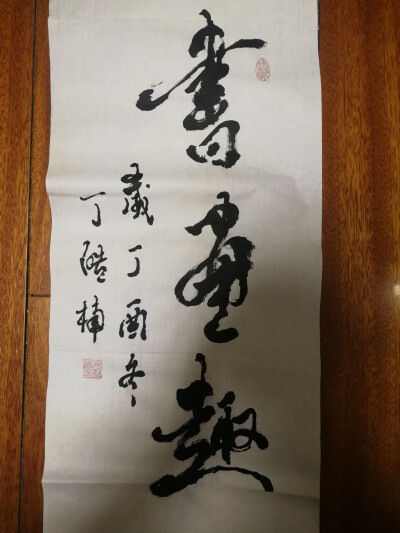 書畫趣
歲丁酉冬
丁楠